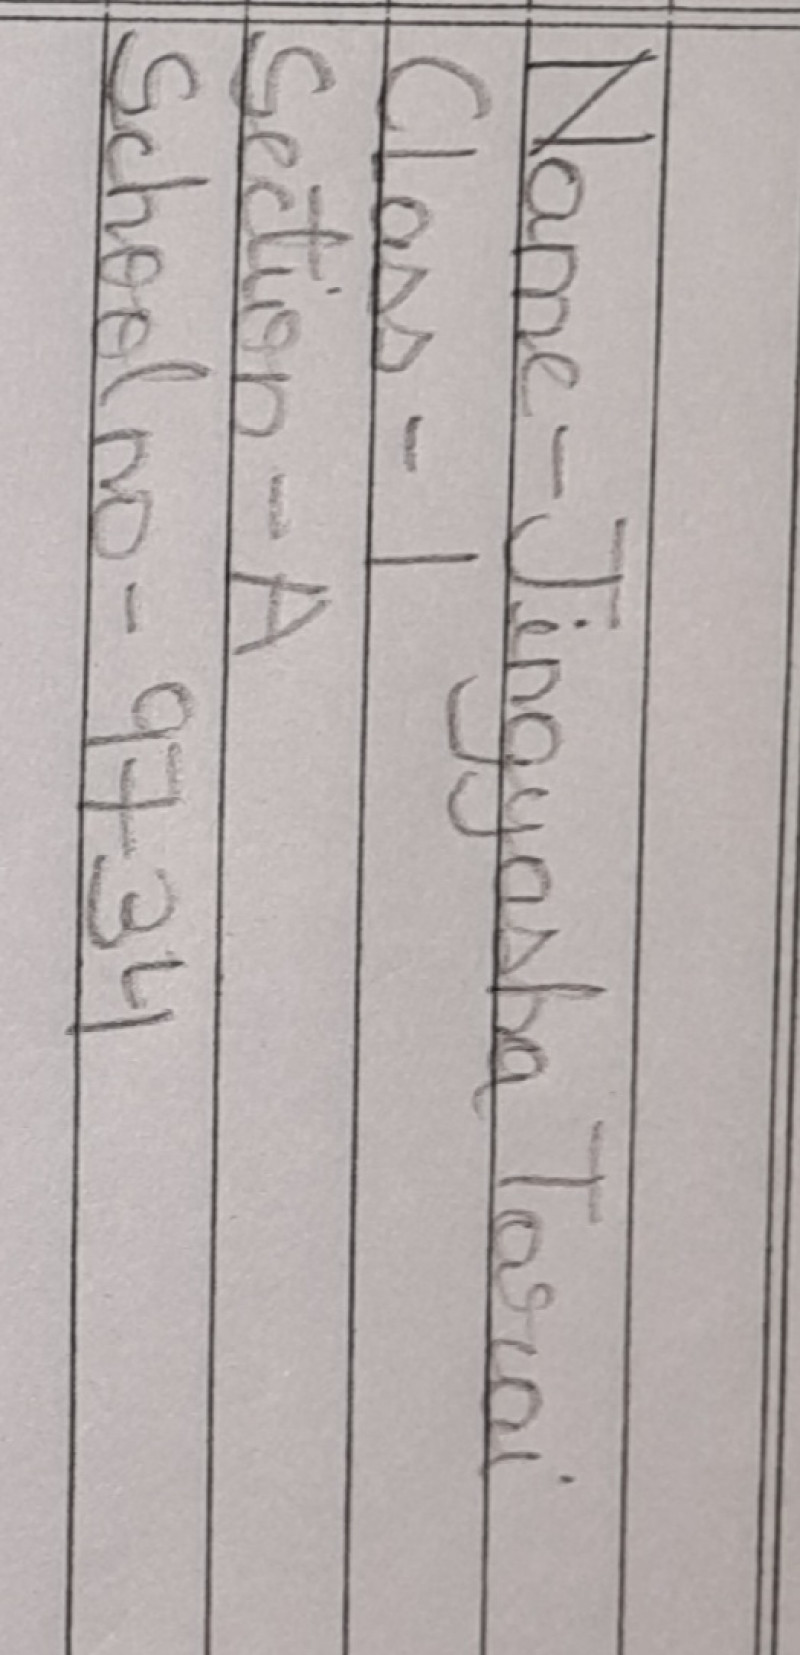 Name - Jingyasha Tarai
Class - 1
Section - A
School no - 9734